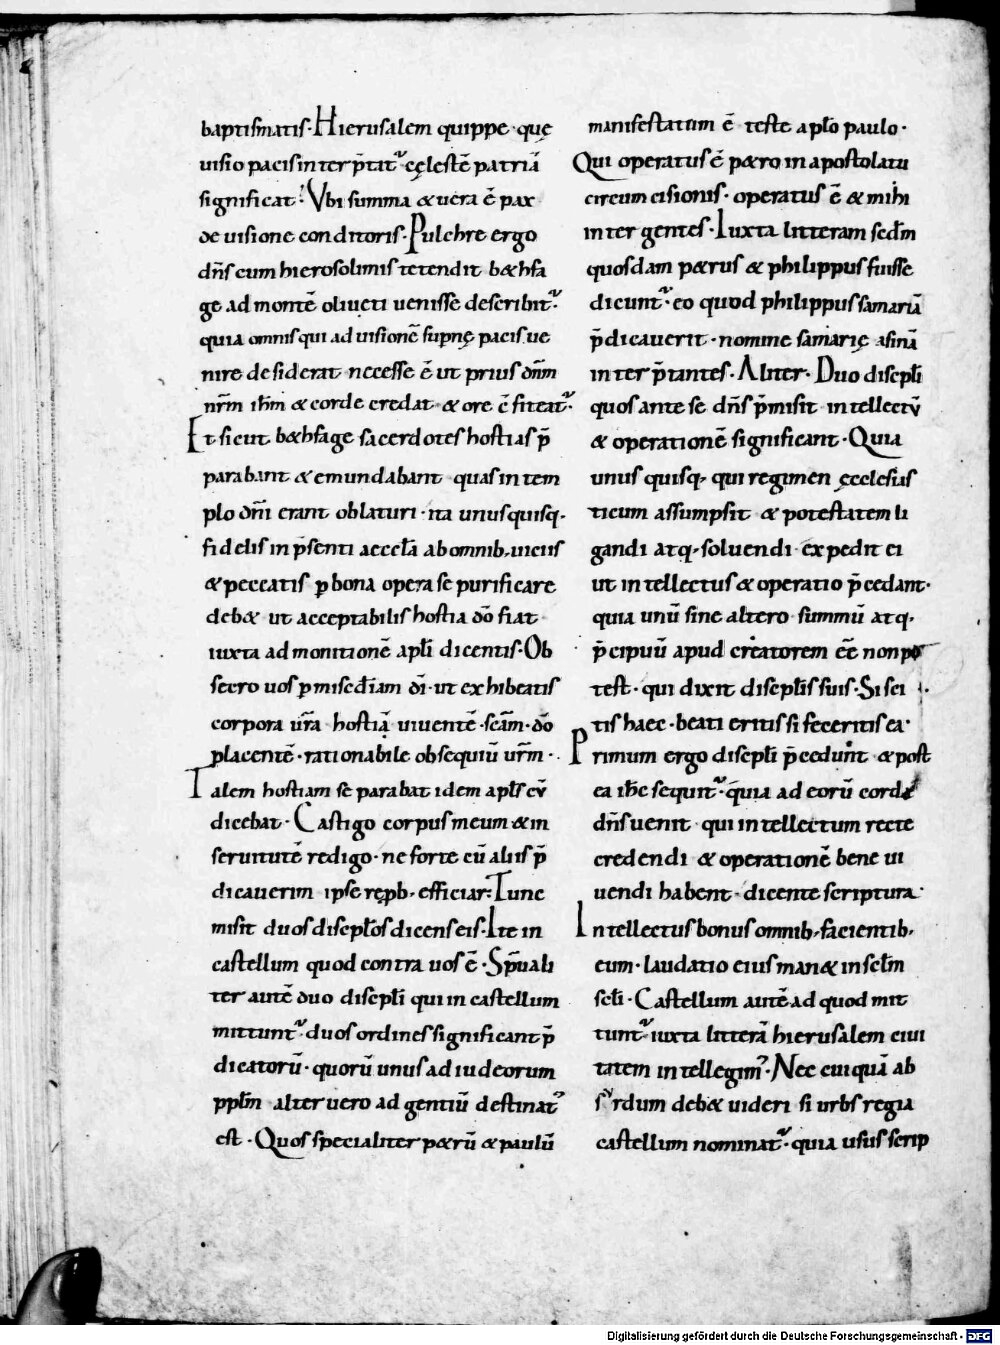 baptismatis. Hierusalem quippe quę
uisio pacis inter p̄tat᷑ cęlestē patriā
significat. Vbi summa & uera ē pax
de uisione conditoris. Pulchre ergo
dn̄s cum hierosolimis tetendit bethfa
ge ad montē oliueti uenisse describit᷑.
quia omnis qui ad uisionē supnę pacis ue
nire desiderat necesse ē ut prius dn̄m
nr̄m ih̄m & corde credat & ore c̄fiteat᷑.
Et sicut b&hfage sacerdotes hostias p̄
parabant & emundabant quas in tem
plo dn̄i erant oblaturi. ita unusquisq.
fidelis in p̄senti æccl̄a ab omnib. uiciis
& peccatis p bona opera se purificare
deb& ut acceptabilis hostia do̅ fiat
iuxta admonitionē apl̄i dicentis. Ob
secro uos p misc̄diam dī. ut exhibeatis
corpora ur̄a hostiā uiuentē. sc̄am. do̅
placentē. rationabile obsequiū ur̄m.
Talem hostiam se parabat idem apl̄s cū
dicebat. Castigo corpus meum & in
seruitutē redigo. ne forte cū aliis p̄
dicauerim ipse rępb. efficiar. Tunc
misit duos discipl̄os dicens eis. Ite in
castellum quod contra uos ē. Sp̄uali
ter autē duo discipl̄i qui in castellum
mittunt᷑ duos ordines significant p̄
dicatorū. quorū unus ad iudeorum
ppl̄m alter uero ad gentiū destinat᷑
est. Quos specialiter p&rū & paulū
manifestatum ē teste apl̄o paulo.
Qui operatus ē p&ro in apostolatu
circumcisionis. operatus ē & mihi
inter gentes. Iuxta litteram sed̄m
quosdam p&rus & philippus fuisse
dicunt᷑. eo quod philippus samariā
p̄dicauerit. nomine samarię asinā
interp̄tantes. Aliter. Duo discipl̄i
quos ante se dn̄s p̄misit intellectū
& operationē significant. Quia
unus quisq. qui regimen ęcclesias
ticum assumpsit & potestatem li
gandi atq. soluendi expedit ei
ut intellectus & operatio p̄cedant.
quia unū sine altero summū atq.
p̄cipuū apud creatorem ēē non po
test. qui dixit discipl̄is suis. Si sci
tis haec. beati eritis si feceritis ea.
Primum ergo discipl̄i p̄cedunt & post
ea ih̄c sequit᷑. quia ad eorū corda
dn̄s uenit qui intellectum recte
credendi & operationē bene ui
uendi habent. dicente scriptura.
Intellectus bonus omnib. facientib.
eum. laudatio eius man& in sc̄lm
sc̄li. Castellum autē ad quod mit
tunt᷑ iuxta litterā hierusalem ciui
tatem intellegim᷒. Nec cuiquā ab
surdum deb& uideri si urbs regia
castellum nominat᷑. quia usus scrip
Digitalisierung gefördert durch die Deutsche Forschungsgemeinschaft - DFG